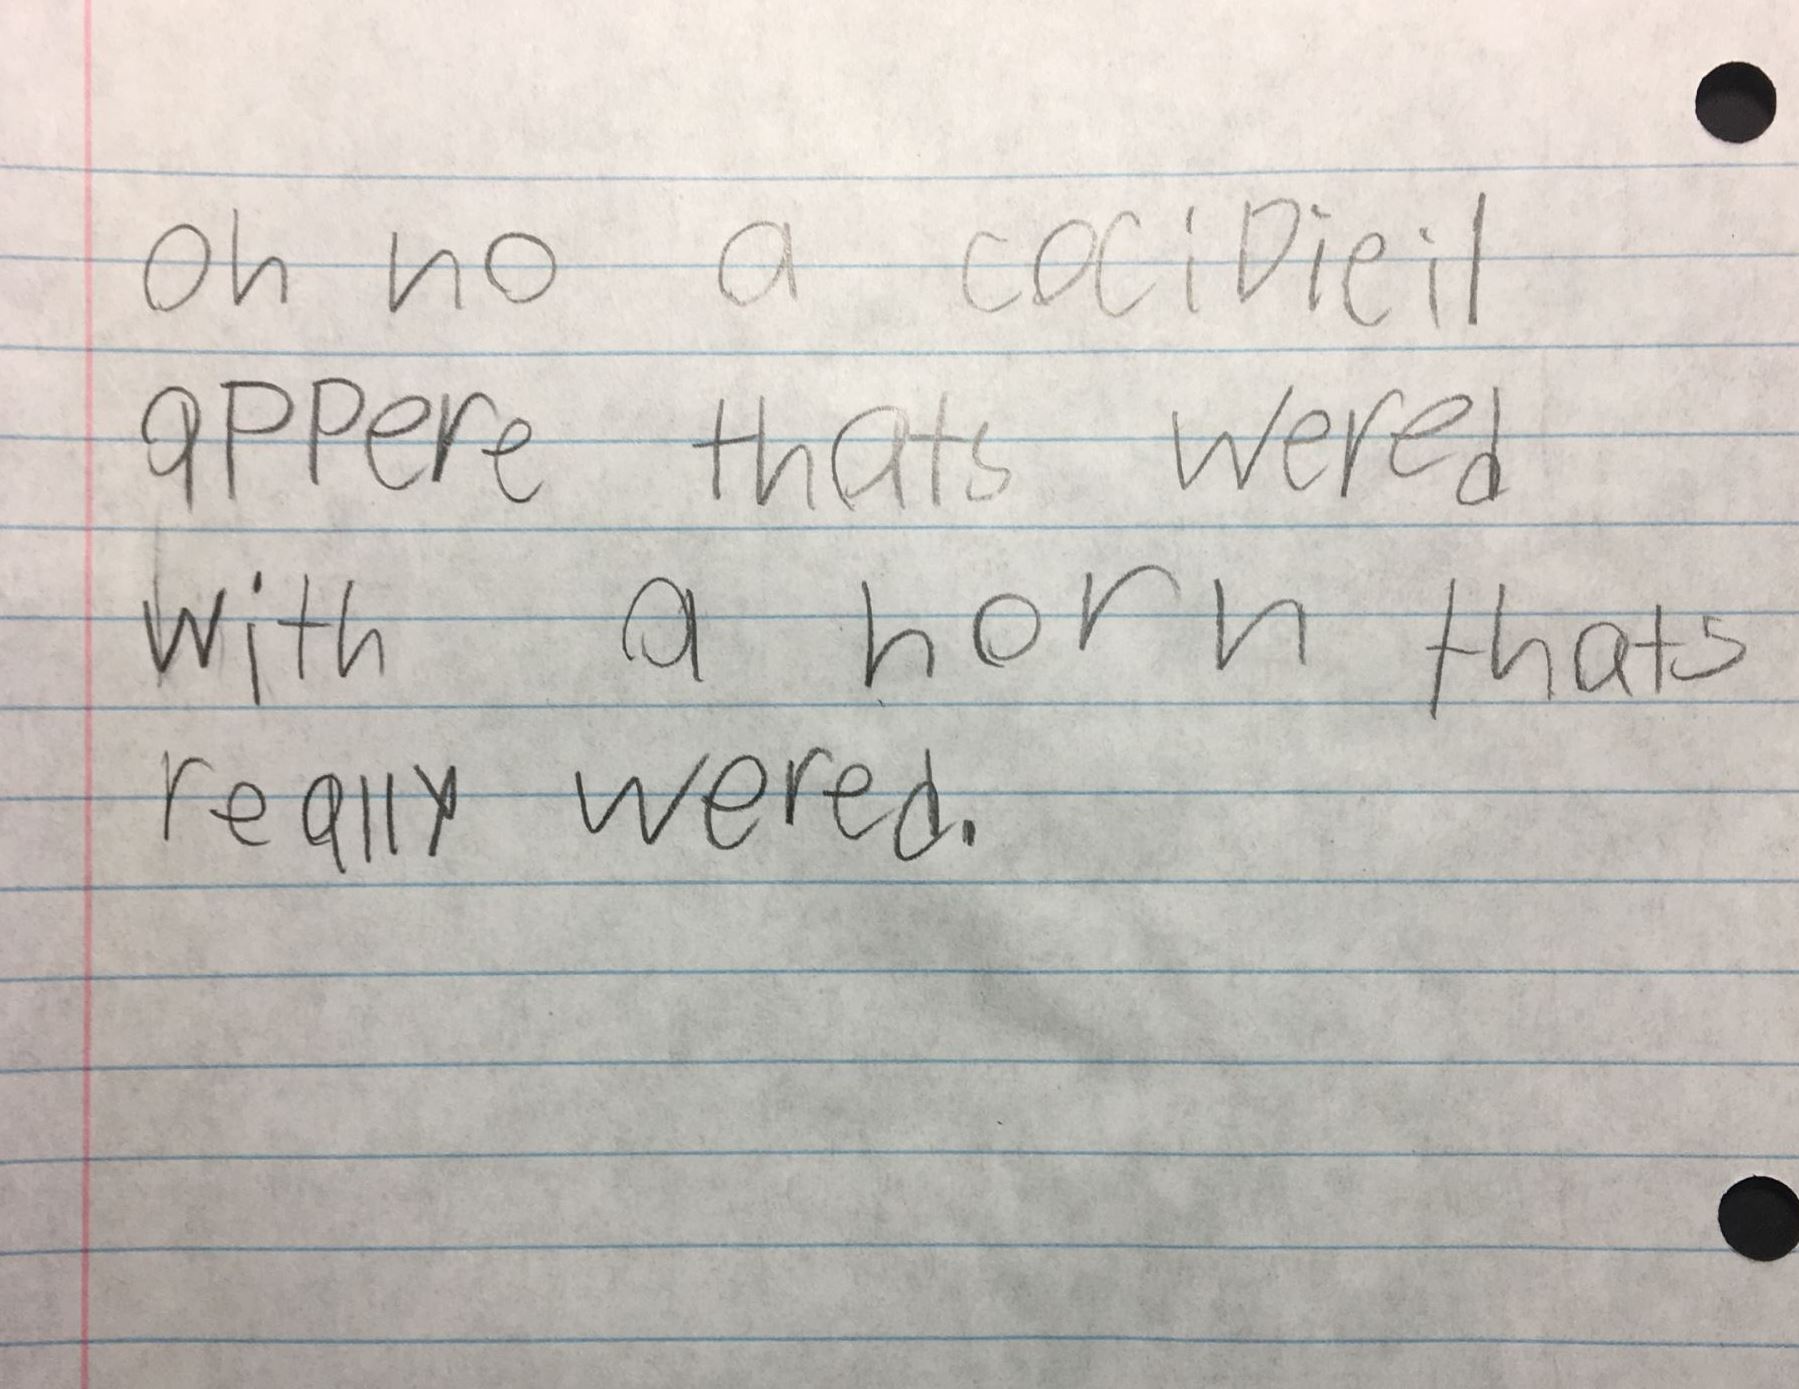 oh no a cociDieil
appere thats wered
with a horn thats
really wered.